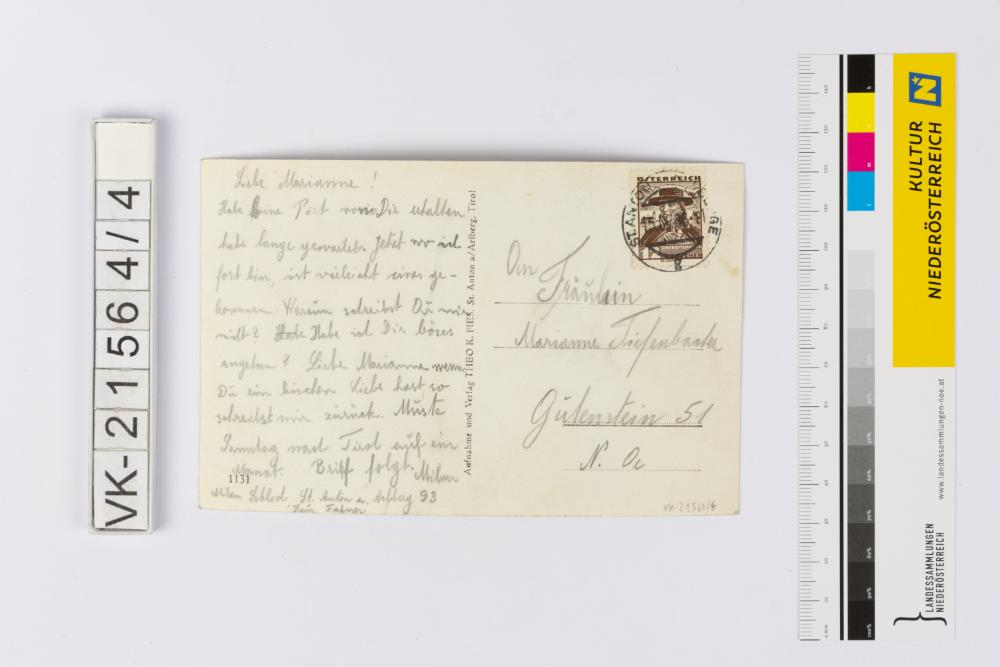 VK-21564/4
Liebe Marianne!
Habe keine Post von Dir erhalten
habe lange gewartet. Jetzt wo ich
fort bin, ist vieleicht eines ge-
kommen. Warum schreibst Du mir
nicht? Habe Habe ich Dir böses
angetan? Liebe Marianne wenn
Du ein bischen Liebe hast, so
schreibst mir zurück. Muste
Samstag nach Tirol auf ein
Monat. Brief folgt. Milan
1131
Milan St. Anton a. Arlberg 93
Aufnahme und Verlag THEO K. PIES, St. Anton a/Arlberg, Tirol
ÖSTERREICH
ST. ANTON
An
Fräulein
Marianne Tiefenbacher
Gutenstein 51
N. Oe
VK-21564/4
KULTUR
NIEDERÖSTERREICH
www.landessammlungen-noe.at
LANDESSAMMLUNGEN
NIEDERÖSTERREICH